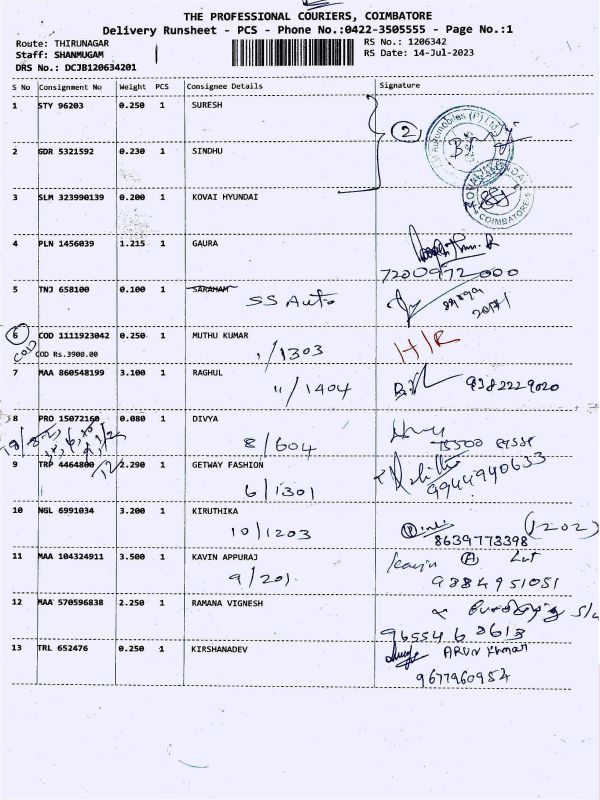 THE PROFESSIONAL COURIERS, COIMBATORE
Delivery Runsheet - PCS - Phone No.:0422-3505555 - Page No.:1
Route: THIRUNAGAR RS No.: 1206342
Staff: SHANMUGAM RS Date: 14-Jul-2023
DRS No.: DCJB120634201
S No Consignment No Weight PCS Consignee Details Signature
1 STY 96203 0.250 1 SURESH
2
2 GDR 5321592 0.230 1 SINDHU
3 SLM 323990139 0.200 1 KOVAI HYUNDAI
COIMBATORE
4 PLN 1456039 1.215 1 GAURA
7200972000
5 TNJ 658100 0.100 1 SARAHAM
SS Auto
6 COD 1111923042 0.250 1 MUTHU KUMAR
COD COD Rs.3900.00
11/1303 H/R
7 MAA 860548199 3.100 1 RAGHUL
11/1404 9382229020
8 PRO 15072160 0.080 1 DIVYA
8/604
9 TRP 4464800 2.290 1 GETWAY FASHION
6/1301 9944940633
10 NGL 6991034 3.200 1 KIRUTHIKA
10/1203 (1202)
8639773398
11 MAA 104324911 3.500 1 KAVIN APPURAJ
9/201 9384951051
12 MAA 570596838 2.250 1 RAMANA VIGNESH
9655468613
13 TRL 652476 0.250 1 KIRSHANADEV
ARUN Kumar
9677960952